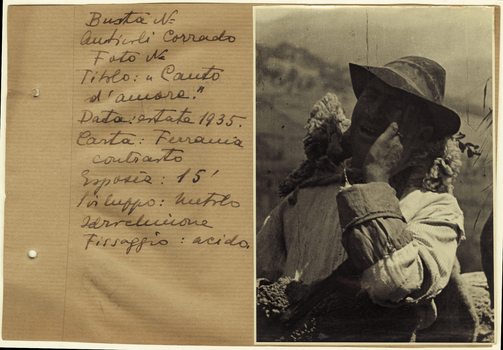 Busta №
Anticoli Corrado
Foto №
Titolo: "Canto
d'amore."
Data: estate 1935.
Carta: Ferrania
contrasto
Esposiz: 15'
Sviluppo: metolo
Idrochinone
Fissaggio: acido,